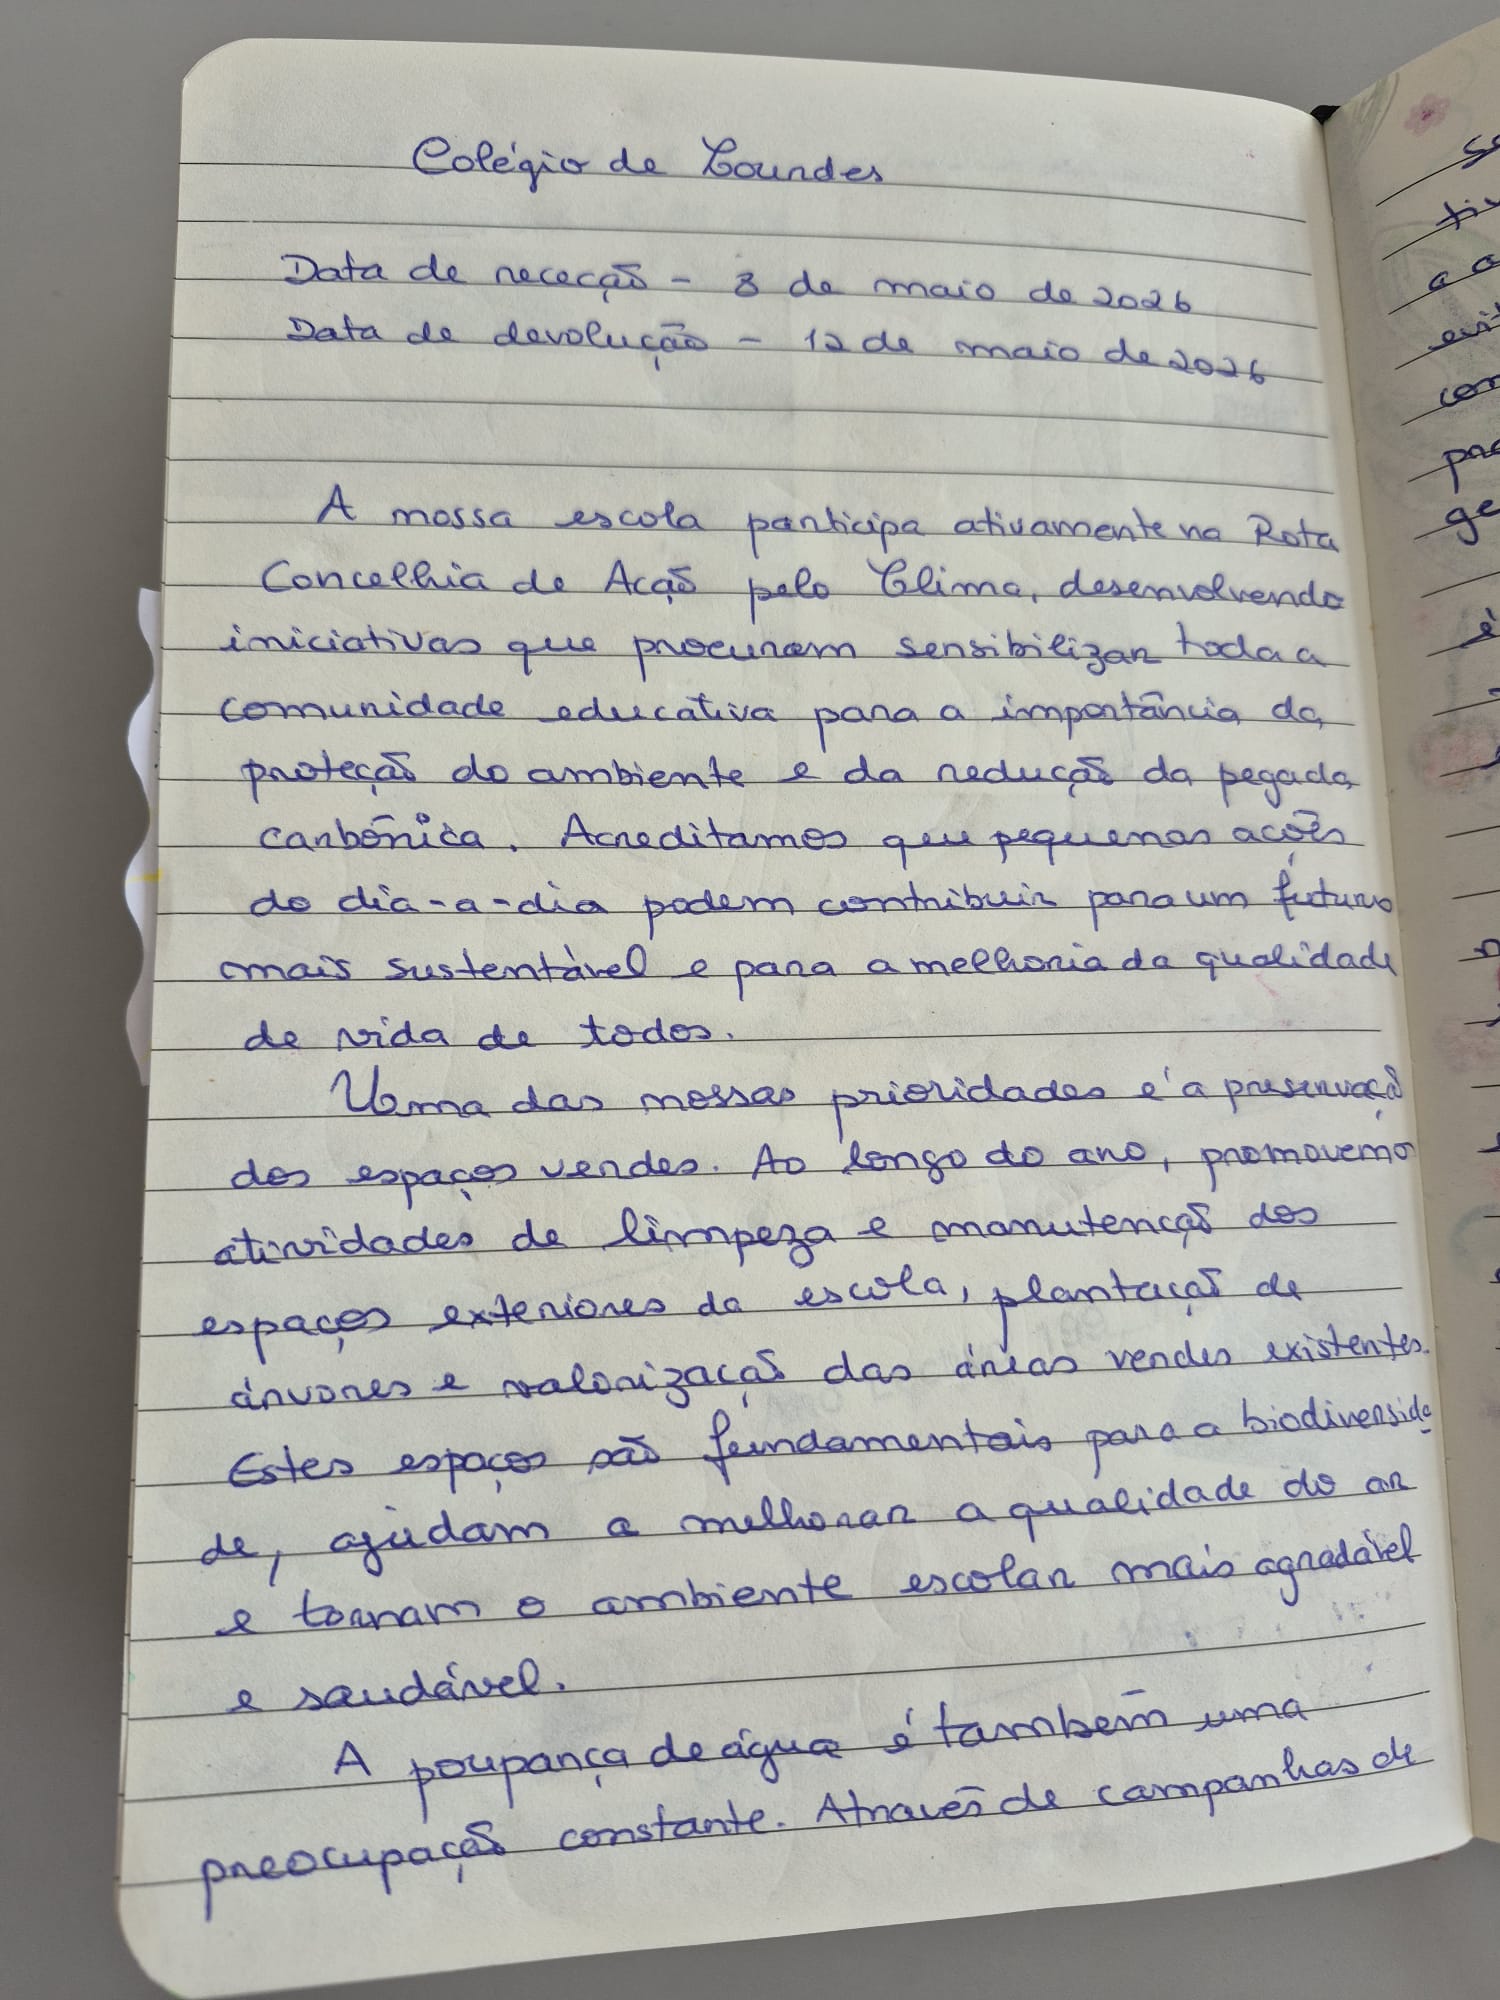 Colégio de Lourdes
Data de receção - 8 de maio de 2026
Data de devolução - 12 de maio de 2026
A nossa escola participa ativamente na Rota
Concelhia de Ação pelo Clima, desenvolvendo
iniciativas que procuram sensibilizar toda a
comunidade educativa para a importância da
proteção do ambiente e da redução da pegada
carbónica. Acreditamos que pequenas ações
do dia-a-dia podem contribuir para um futuro
mais sustentável e para a melhoria da qualidade
de vida de todos.
Uma das nossas prioridades é a preservação
dos espaços verdes. Ao longo do ano, promovemos
atividades de limpeza e manutenção dos
espaços exteriores da escola, plantação de
árvores e valorização das áreas verdes existentes.
Estes espaços são fundamentais para a biodiversida
de, ajudam a melhorar a qualidade do ar
e tornam o ambiente escolar mais agradável
e saudável.
A poupança de água é também uma
preocupação constante. Através de campanhas de